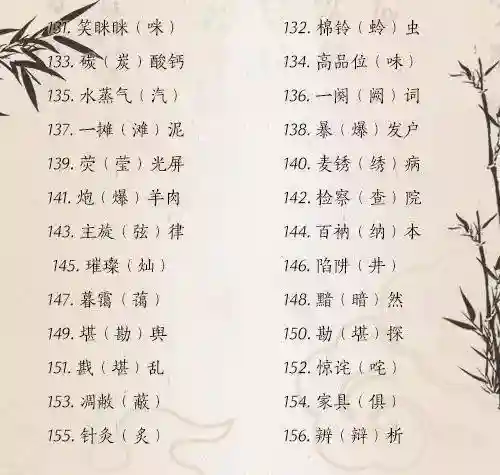 131. 笑眯眯（咪） 132. 棉铃（蛉）虫
133. 碳（炭）酸钙 134. 高品位（味）
135. 水蒸气（汽） 136. 一阕（阙）词
137. 一摊（滩）泥 138. 暴（爆）发户
139. 荧（莹）光屏 140. 麦锈（绣）病
141. 炮（爆）羊肉 142. 检察（查）院
143. 主旋（弦）律 144. 百衲（纳）本
145. 璀璨（灿） 146. 陷阱（井）
147. 暮霭（蔼） 148. 黯（暗）然
149. 堪（勘）舆 150. 勘（堪）探
151. 戡（堪）乱 152. 惊诧（咤）
153. 凋敝（蔽） 154. 家具（俱）
155. 针灸（炙） 156. 辨（辩）析